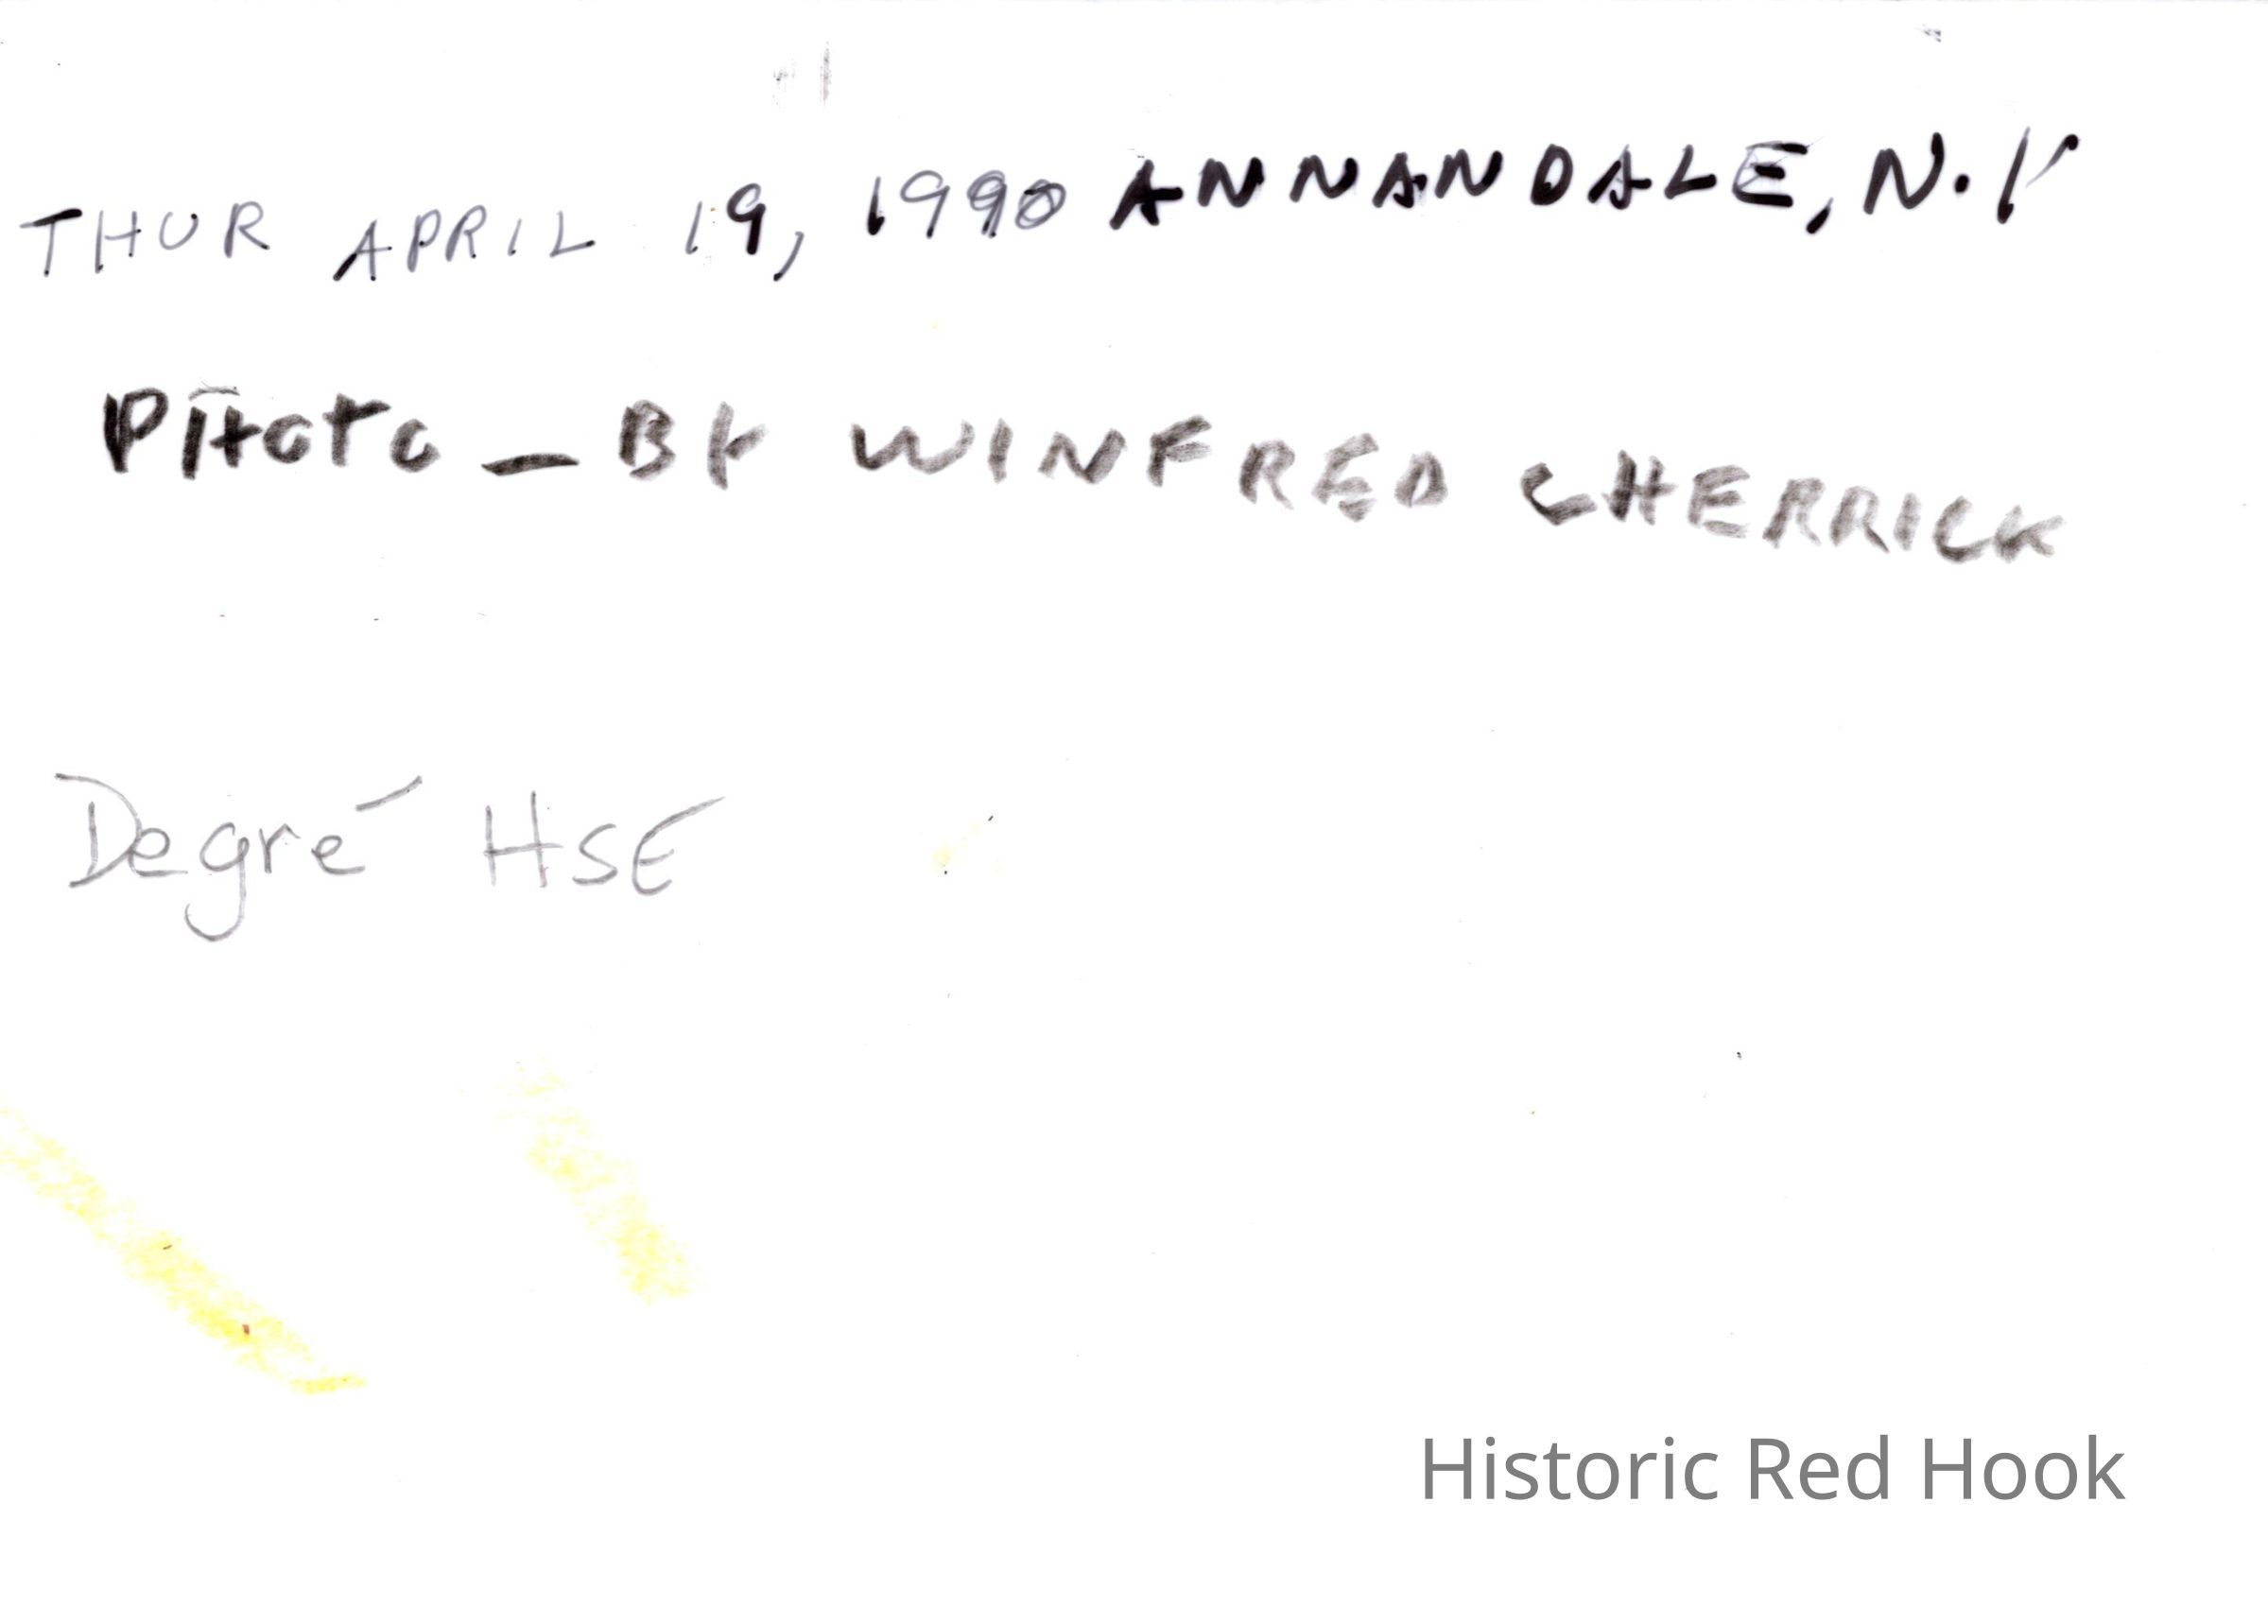 THUR APRIL 19, 1990 ANNANDALE, N.Y
PHOTO – BY WINFRED CHERRICK
Degré HSE
Historic Red Hook